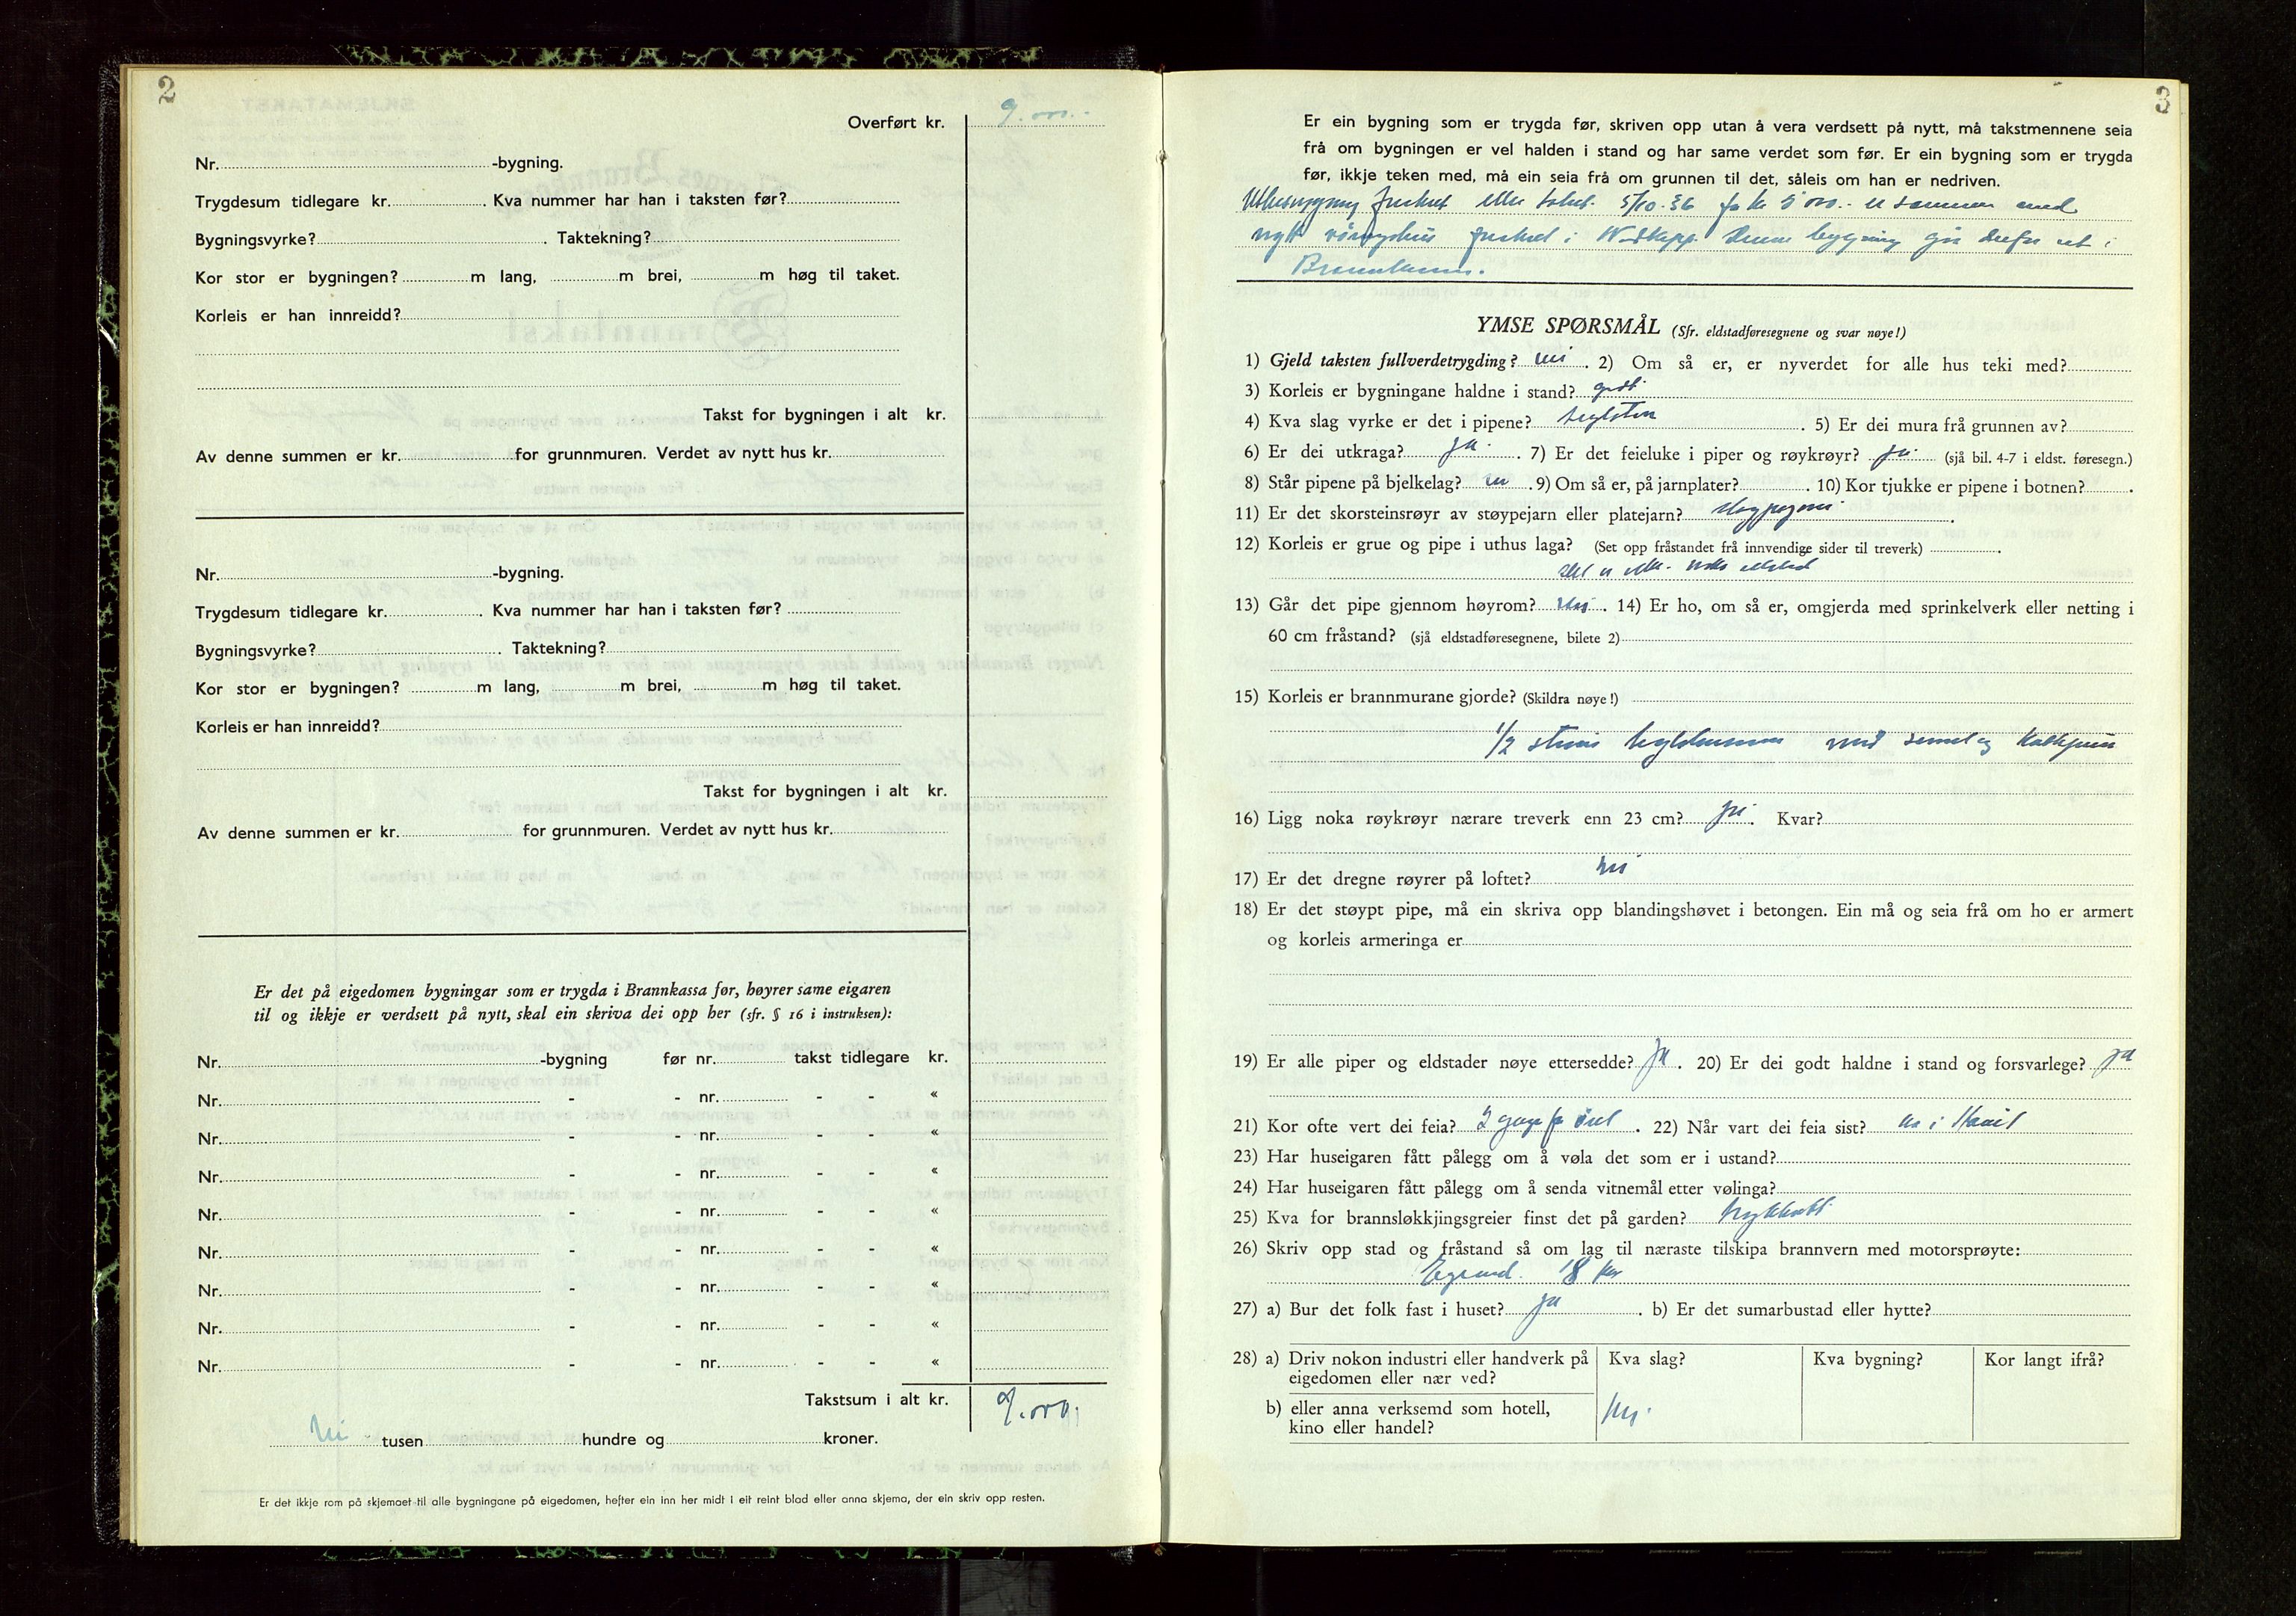 2
Overført kr. 9.000.-
Nr. -bygning.
Trygdesum tidlegare kr. Kva nummer har han i taksten før?
Bygningsvyrke? . Taktekning?
Kor stor er bygningen? m lang, m brei, m høg til taket.
Korleis er han innreidd?
Takst for bygningen i alt kr.
Av denne summen er kr. for grunnmuren. Verdet av nytt hus kr.
Nr. -bygning.
Trygdesum tidlegare kr. . Kva nummer har han i taksten før?
Bygningsvyrke? . Taktekning?
Kor stor er bygningen? m lang, m brei, m høg til taket.
Korleis er han innreidd?
Takst for bygningen i alt kr.
Av denne summen er kr. for grunnmuren. Verdet av nytt hus kr.
Er det på eigedomen bygningar som er trygda i Brannkassa før, høyrer same eigaren
til og ikkje er verdsett på nytt, skal ein skriva dei opp her (sfr. § 16 i instruksen):
Nr. -bygning før nr. takst tidlegare kr.
Nr. - - nr. - - «
Nr. - - nr. - - «
Nr. - - nr. - - «
Nr. - - nr. - - «
Nr. - - nr. - - «
Nr. - - nr. - - «
Nr. - - nr. - - «
Nr. - - nr. - - «
Takstsum i alt kr. 9.000.
ni tusen hundre og kroner.
Er det ikkje rom på skjemaet til alle bygningane på eigedomen, hefter ein inn her midt i eit reint blad eller anna skjema, der ein skriv opp resten.
3
Er ein bygning som er trygda før, skriven opp utan å vera verdsett på nytt, må takstmennene seia
frå om bygningen er vel halden i stand og har same verdet som før. Er ein bygning som er trygda
før, ikkje teken med, må ein seia frå om grunnen til det, såleis om han er nedriven.
eller takst 5/10-36 for kr 5 000.- er sammen med
nytt i denne bygning går derfor ut i
Brannkassen.
YMSE SPØRSMÅL (Sfr. eldstadføresegnene og svar nøye!)
1) Gjeld taksten fullverdetrygding? nei . 2) Om så er, er nyverdet for alle hus teki med?
3) Korleis er bygningane haldne i stand? godt
4) Kva slag vyrke er det i pipene? teglsten . 5) Er dei mura frå grunnen av?
6) Er dei utkraga? ja . 7) Er det feieluke i piper og røykrøyr? ja (sjå bil. 4-7 i eldst. føresegn.)
8) Står pipene på bjelkelag? nei . 9) Om så er, på jarnplater? . 10) Kor tjukke er pipene i botnen? .
11) Er det skorsteinsrøyr av støypejarn eller platejarn? støypejarn .
12) Korleis er grue og pipe i uthus laga? (Set opp fråstandet frå innvendige sider til treverk) .
det er ikke noko eldstad
13) Går det pipe gjennom høyrom? nei . 14) Er ho, om så er, omgjerda med sprinkelverk eller netting i
60 cm fråstand? (sjå eldstadføresegnene, bilete 2)
15) Korleis er brannmurane gjorde? (Skildra nøye!)
1/2 steins teglstensmur med sement og kalkpuss
16) Ligg noka røykrøyr nærare treverk enn 23 cm? . Kvar?
17) Er det dregne røyrer på loftet? nei
18) Er det støypt pipe, må ein skriva opp blandingshøvet i betongen. Ein må og seia frå om ho er armert
og korleis armeringa er
19) Er alle piper og eldstader nøye ettersedde? ja . 20) Er dei godt haldne i stand og forsvarlege? ja
21) Kor ofte vert dei feia? 2 gange pr året . 22) Når vart dei feia sist? nu i
23) Har huseigaren fått pålegg om å vøla det som er i ustand?
24) Har huseigaren fått pålegg om å senda vitnemål etter vølinga?
25) Kva for brannsløkkjingsgreier finst det på garden? trykkvatt
26) Skriv opp stad og fråstand så om lag til næraste tilskipa brannvern med motorsprøyte:
Egersund. 18 km
27) a) Bur det folk fast i huset? ja . b) Er det sumarbustad eller hytte?
28) a) Driv nokon industri eller handverk på eigedomen eller nær ved? Kva slag? Kva bygning? Kor langt ifrå?
b) eller anna verksemd som hotell, kino eller handel? nei.